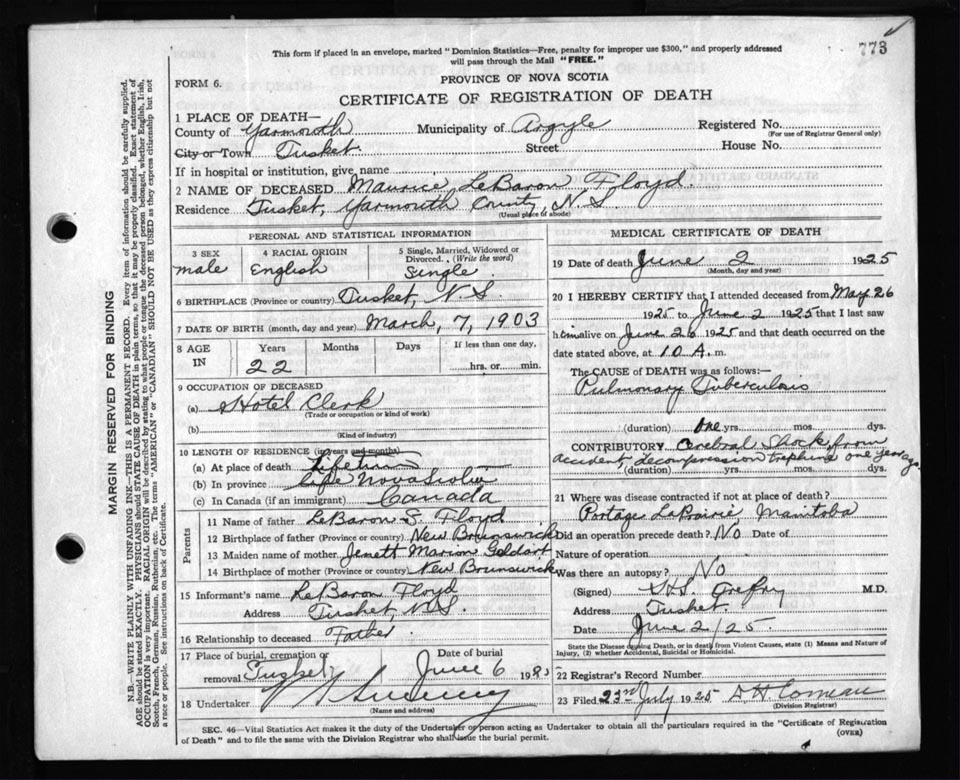 773
This form if placed in an envelope, marked "Dominion Statistics—Free, penalty for improper use $300," and properly addressed
will pass through the Mail "FREE."
FORM 6.
PROVINCE OF NOVA SCOTIA
CERTIFICATE OF REGISTRATION OF DEATH
1 PLACE OF DEATH—
County of Yarmouth Municipality of Argyle Registered No.
(For use of Registrar General only)
City or Town Tusket Street House No.
If in hospital or institution, give name
2 NAME OF DECEASED Maurice LeBaron Floyd.
Residence Tusket, Yarmouth County, N.S.
(Usual place of abode)
PERSONAL AND STATISTICAL INFORMATION
3 SEX 4 RACIAL ORIGIN 5 Single, Married, Widowed or
Divorced. (Write the word)
male English Single.
6 BIRTHPLACE (Province or country) Tusket, N.S.
7 DATE OF BIRTH (month, day and year) March, 7, 1903
8 AGE IN Years Months Days If less than one day,
22 hrs. or min.
9 OCCUPATION OF DECEASED
(a) Hotel Clerk
(Trade or occupation or kind of work)
(b)
(Kind of industry)
10 LENGTH OF RESIDENCE (in years and months)
(a) At place of death Lifetime
(b) In province life Nova Scotia
(c) In Canada (if an immigrant) Canada
Parents
11 Name of father LeBaron S. Floyd
12 Birthplace of father (Province or country) New Brunswick
13 Maiden name of mother Jenett Marion
14 Birthplace of mother (Province or country) New Brunswick
15 Informant's name LeBaron Floyd
Address Tusket, N.S.
16 Relationship to deceased Father
17 Place of burial, cremation or Date of burial
removal Tusket June 6 19
18 Undertaker Sweeney
(Name and address)
MEDICAL CERTIFICATE OF DEATH
19 Date of death June 2 1925
(Month, day and year)
20 I HEREBY CERTIFY that I attended deceased from May 26
1925 to June 2 1925 that I last saw
him alive on June 2 1925 and that death occurred on the
date stated above, at 10 A. m.
The CAUSE OF DEATH was as follows:—
Pulmonary Tuberculosis
(duration) one yrs. mos. dys.
CONTRIBUTORY Cerebral Shock from
accident decompression trephine one year ago.
(duration) yrs. mos. dys.
21 Where was disease contracted if not at place of death?
Portage LaPrairie Manitoba
Did an operation precede death? No Date of
Nature of operation
Was there an autopsy? No
(Signed) M.D.
Address Tusket.
Date June 2/25.
State the Disease causing Death, or in death from Violent Causes, state (1) Means and Nature of
Injury, (2) whether Accidental, Suicidal or Homicidal.
22 Registrar's Record Number
23 Filed 23rd July 1925 D H Comeau
(Division Registrar)
SEC. 46—Vital Statistics Act makes it the duty of the Undertaker or person acting as Undertaker to obtain all the particulars required in the "Certificate of Registration
of Death" and to file the same with the Division Registrar who shall issue the burial permit.
(OVER)
MARGIN RESERVED FOR BINDING
N.B.—WRITE PLAINLY WITH UNFADING INK—THIS IS A PERMANENT RECORD. Every item of information should be carefully supplied.
AGE should be stated EXACTLY. PHYSICIANS should STATE CAUSE OF DEATH in plain terms, so that it may be properly classified. Exact statement of
OCCUPATION is very important. RACIAL ORIGIN will be described by stating to what people or tongue the deceased person belonged, whether English, Irish,
Scotch, French, German, Russian, Ruthenian, etc. The terms "AMERICAN" or "CANADIAN" SHOULD NOT BE USED as they express citizenship but not
a race or people. See instructions on back of Certificate.